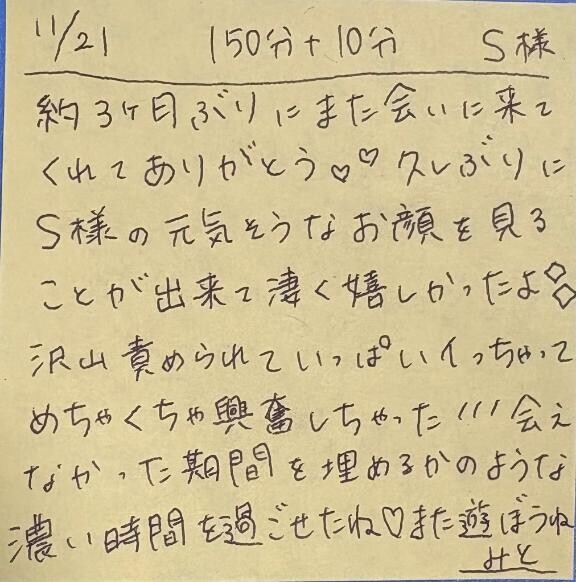 11/21 150分+10分 S様
約3ヶ月ぶりにまた会いに来て
くれてありがとう♡♡久しぶりに
S様の元気そうなお顔を見る
ことが出来て凄く嬉しかったよ◇◇
沢山責められていっぱいイっちゃって
めちゃくちゃ興奮しちゃった///会え
なかった期間を埋めるかのような
濃い時間を過ごせたね♡また遊ぼうね
みと